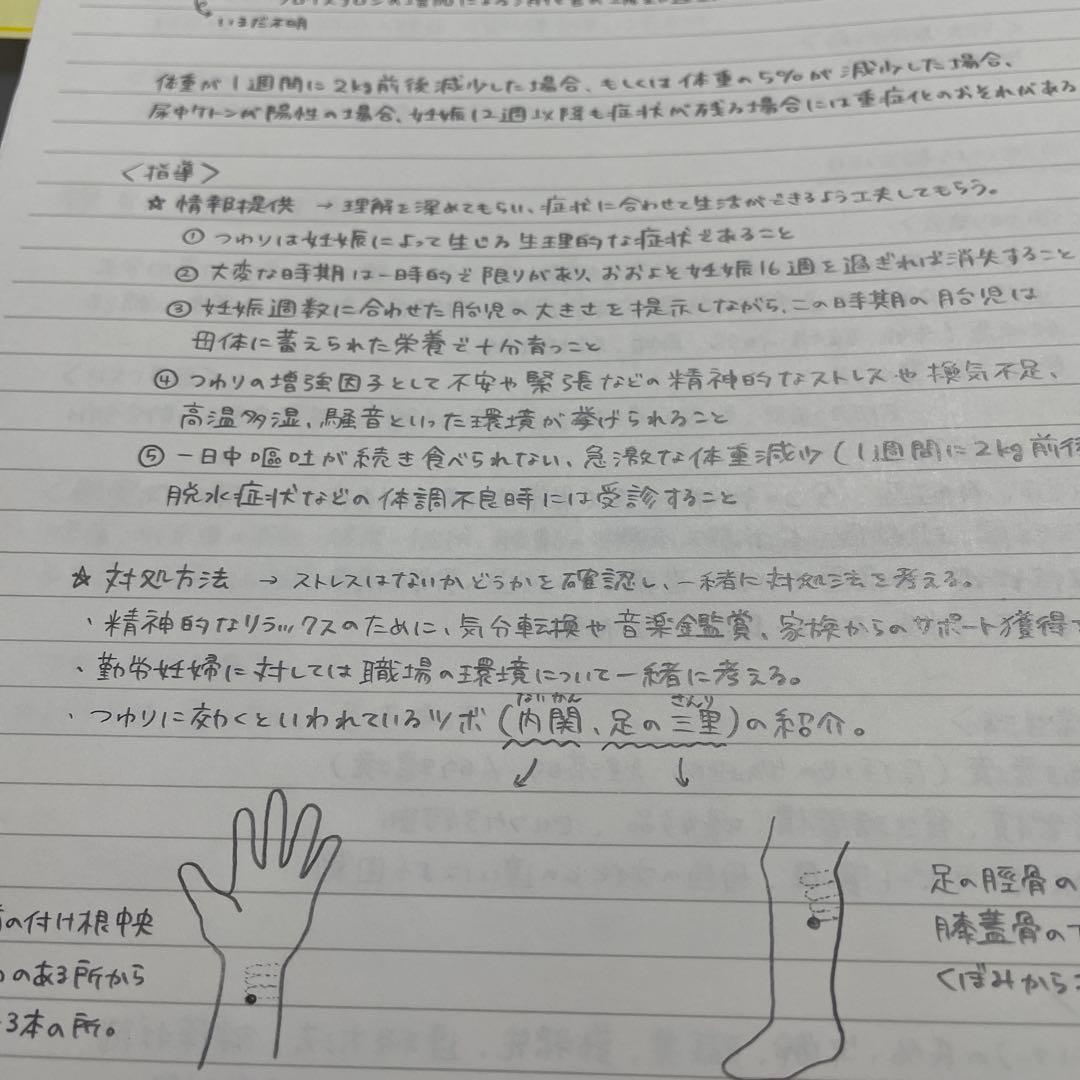 いまだ不明
体重が1週間に2kg前後減少した場合、もしくは体重の5%が減少した場合、
尿中ケトンが陽性の場合、妊娠12週以降も症状が残る場合には重症化のおそれがある
<指導>
☆ 情報提供 → 理解を深めてもらい、症状に合わせて生活ができるよう工夫してもらう。
① つわりは妊娠によって生じる生理的な症状であること
② 大変な時期は一時的で限りがあり、おおよそ妊娠16週を過ぎれば消失すること
③ 妊娠週数に合わせた胎児の大きさを提示しながら、この時期の胎児は
母体に蓄えられた栄養で十分育つこと
④ つわりの増強因子として不安や緊張などの精神的なストレスや換気不足、
高温多湿、騒音といった環境が挙げられること
⑤ 一日中嘔吐が続き食べられない、急激な体重減少(1週間に2kg前後
脱水症状などの体調不良時には受診すること
☆ 対処方法 → ストレスはないかどうかを確認し、一緒に対処法を考える。
・精神的なリラックスのために、気分転換や音楽鑑賞、家族からのサポート獲得
・勤労妊婦に対しては職場の環境について一緒に考える。
ないかん さんり
・つわりに効くといわれているツボ(内関、足の三里)の紹介。
の付け根中央
のある所から
3本の所。
足の脛骨の
膝蓋骨の
くぼみから